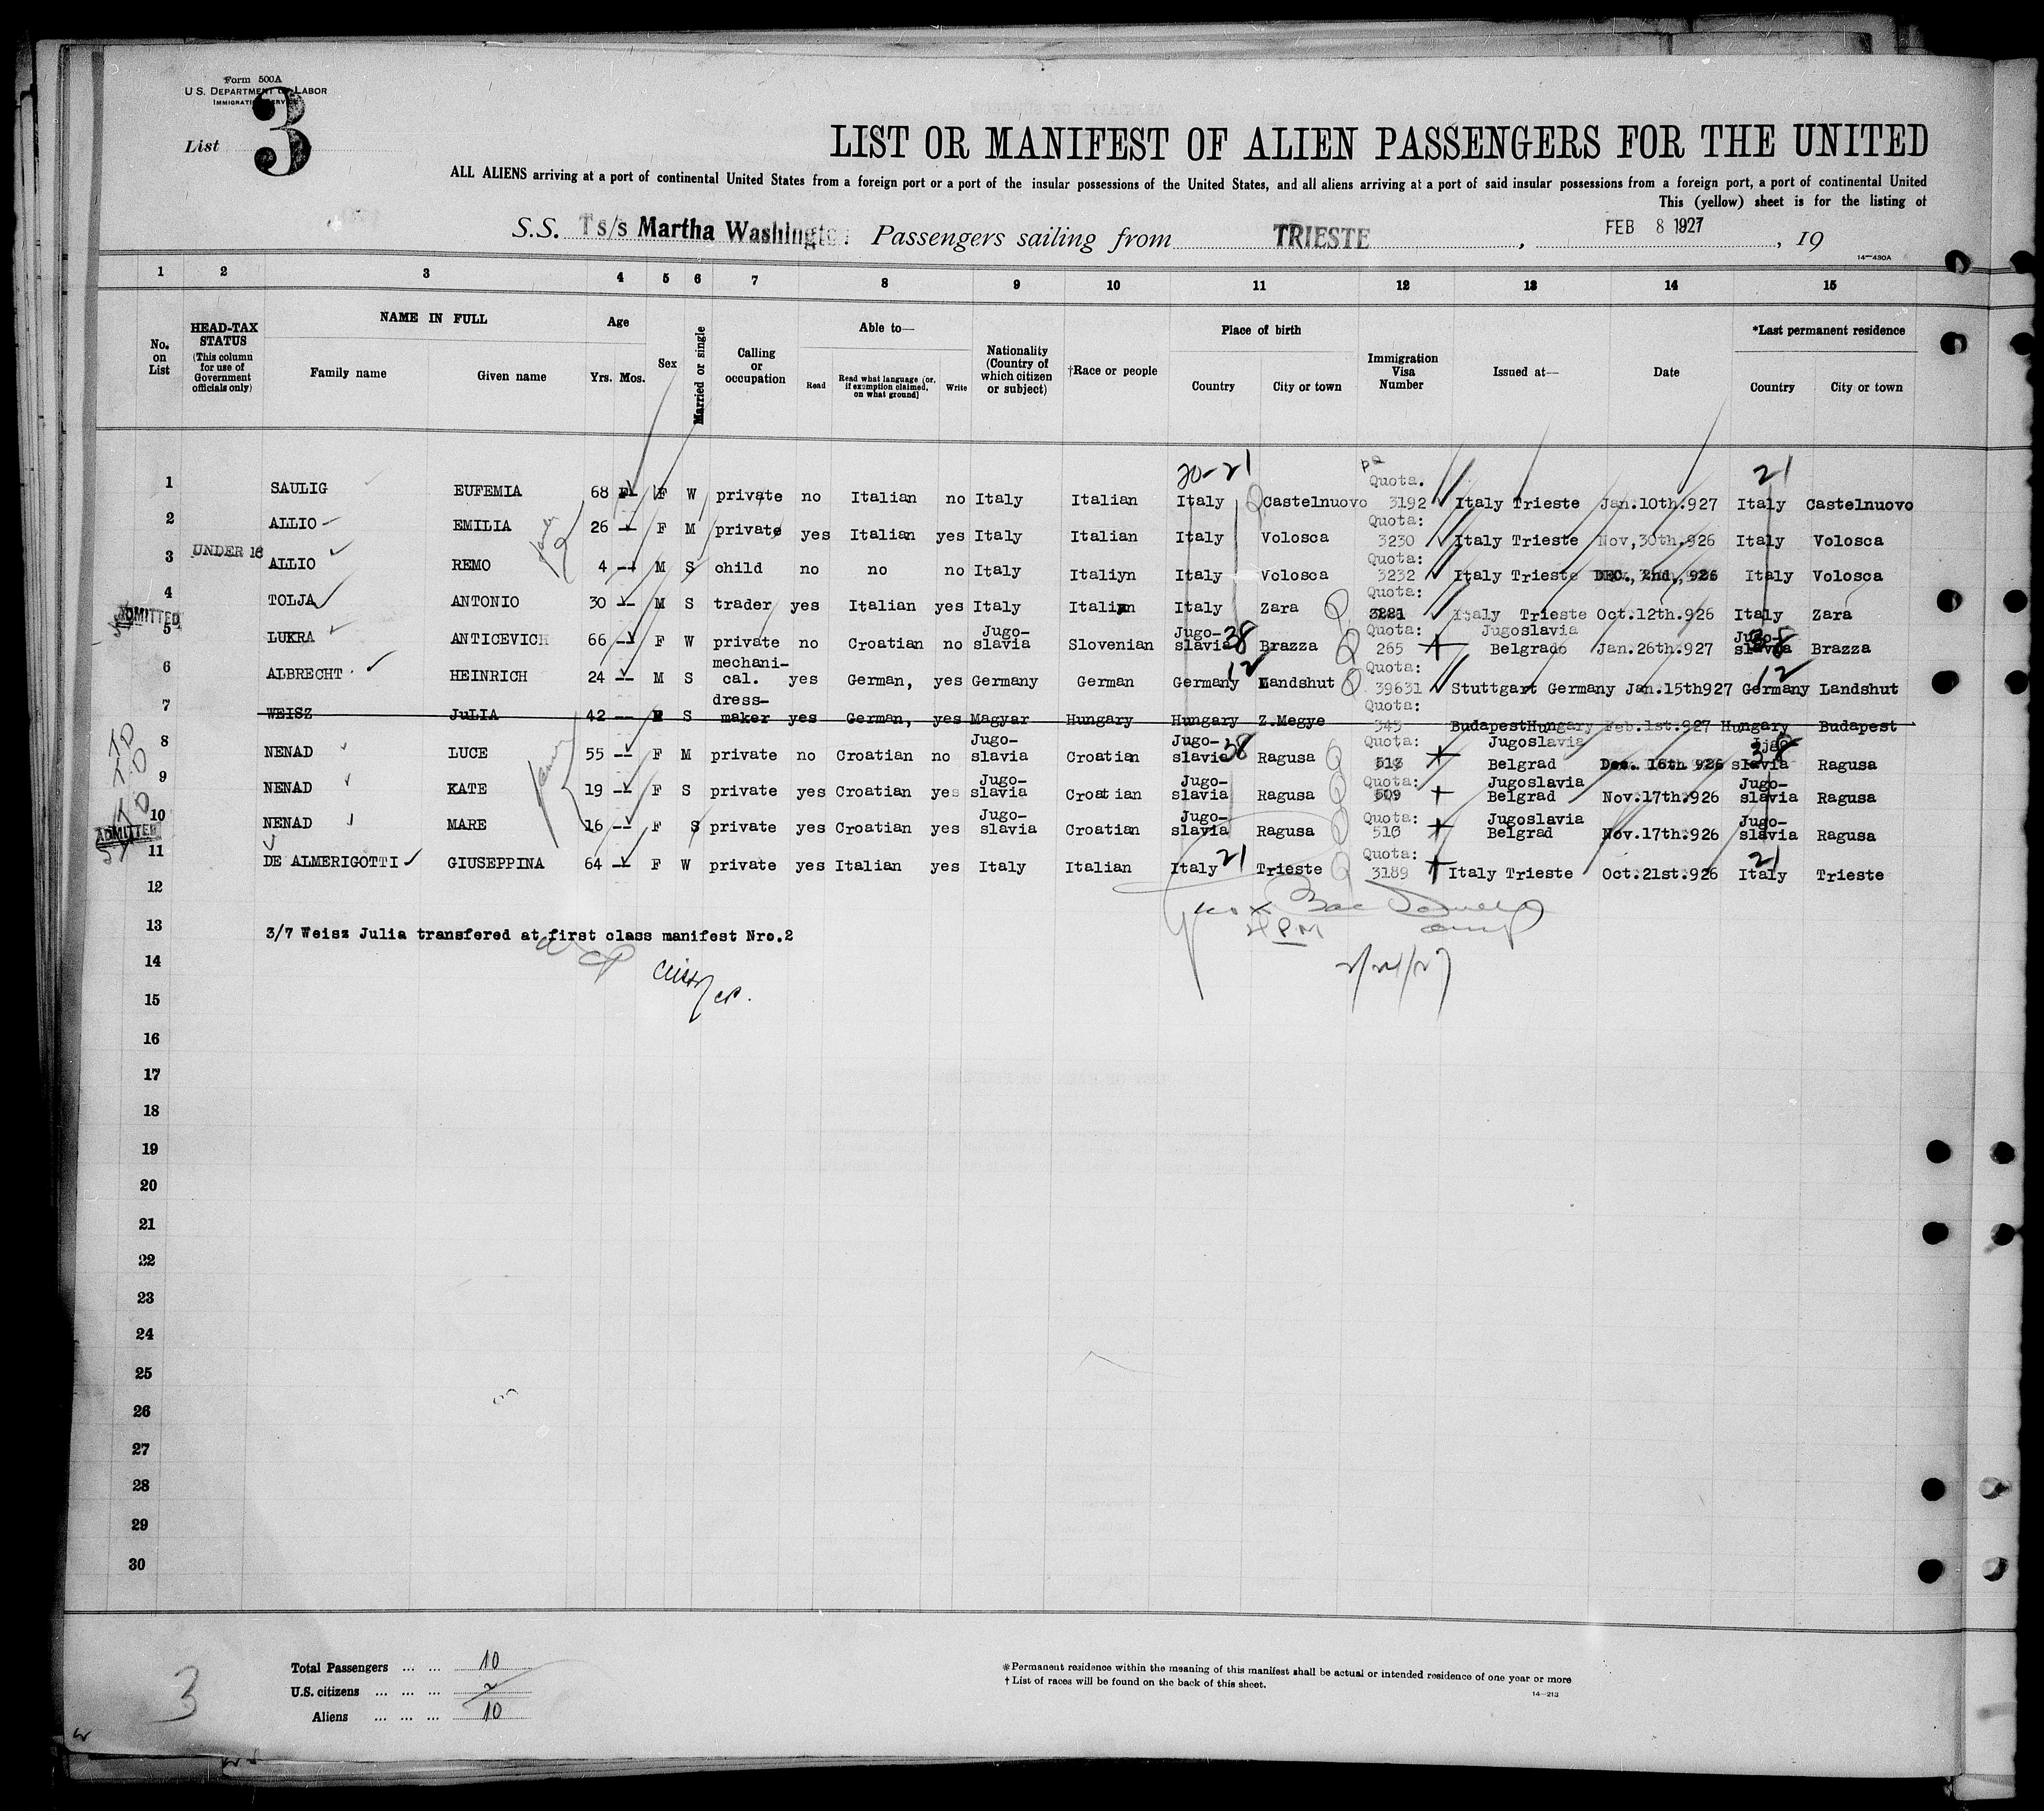 Form 500A
U. S. DEPARTMENT OF LABOR
IMMIGRATION SERVICE
List 3
LIST OR MANIFEST OF ALIEN PASSENGERS FOR THE UNITED
ALL ALIENS arriving at a port of continental United States from a foreign port or a port of the insular possessions of the United States, and all aliens arriving at a port of said insular possessions from a foreign port, a port of continental United
This (yellow) sheet is for the listing of
S.S. Ts/s Martha Washington Passengers sailing from TRIESTE, FEB 8 1927, 19
14—430A
1 2 3 4 5 6 7 8 9 10 11 12 13 14 15
No. on List
HEAD-TAX STATUS (This column for use of Government officials only)
NAME IN FULL
Family name Given name
Age
Yrs. Mos.
Sex
Married or single
Calling or occupation
Able to—
Read
Read what language (or, if exemption claimed, on what ground)
Write
Nationality (Country of which citizen or subject)
†Race or people
Place of birth
Country City or town
Immigration Visa Number
Issued at—
Date
*Last permanent residence
Country City or town
20-21 21
1 SAULIG EUFEMIA 68 F W private no Italian no Italy Italian Italy Castelnuovo Quota. 3192 Italy Trieste Jan.10th.927 Italy Castelnuovo
2 ALLIO EMILIA 26 — F M private yes Italian yes Italy Italian Italy Volosca Quota: 3230 Italy Trieste Nov,30th.926 Italy Volosca
3 UNDER 16 ALLIO REMO 4 — M S child no no no Italy Italiyn Italy Volosca Quota: 3232 Italy Trieste DEC., 2nd, 926 Italy Volosca
4 TOLJA ANTONIO 30 — M S trader yes Italian yes Italy Italian Italy Zara Quota: Italy Trieste Oct.12th.926 Italy Zara
ADMITTED
5 LUKRA ANTICEVICH 66 — F W private no Croatian no Jugo-slavia Slovenian Jugo-slavia 38 Brazza Quota: 265 Jugoslavia Belgrado Jan.26th.927 Jugo-slavia 38 Brazza
6 ALBRECHT HEINRICH 24 — M S mechani-cal. yes German, yes Germany German Germany 12 Landshut Quota: 39631 Stuttgart Germany Jan.15th927 Germany 12 Landshut
7 WEISZ JuLIA 42 — F S dress-maker yes German, yes Magyar Hungary Hungary Z.Megye Quota: 345 BudapestHungary Feb.1st.927 Hungary Budapest
8 NENAD LUCE 55 — F M private no Croatian no Jugo-slavia Croatian Jugo-slavia 38 Ragusa Quota: 513 Jugoslavia Belgrad Dec. 16th 926 slavia 38 Ragusa
9 NENAD KATE 19 — F S private yes Croatian yes Jugo-slavia Croatian Jugo-slavia Ragusa Quota: 509 Jugoslavia Belgrad Nov.17th.926 Jugo-slavia Ragusa
10 NENAD MARE 16 — F S private yes Croatian yes Jugo-slavia Croatian Jugo-slavia Ragusa Quota: 510 Jugoslavia Belgrad Nov.17th.926 Jugo-slavia Ragusa
ADMITTED
11 DE ALMERIGOTTI GIUSEPPINA 64 — F W private yes Italian yes Italy Italian Italy 21 Trieste Quota: 3189 Italy Trieste Oct.21st.926 Italy 21 Trieste
12
13 3/7 Weisz Julia transfered at first class manifest Nro.2
14
15
16
17
18
19
20
21
22
23
24
25
26
27
28
29
30
Total Passengers ... ... 10
U.S. citizens ... ... ...
Aliens ... ... ... 10
3
*Permanent residence within the meaning of this manifest shall be actual or intended residence of one year or more
†List of races will be found on the back of this sheet.
14—213